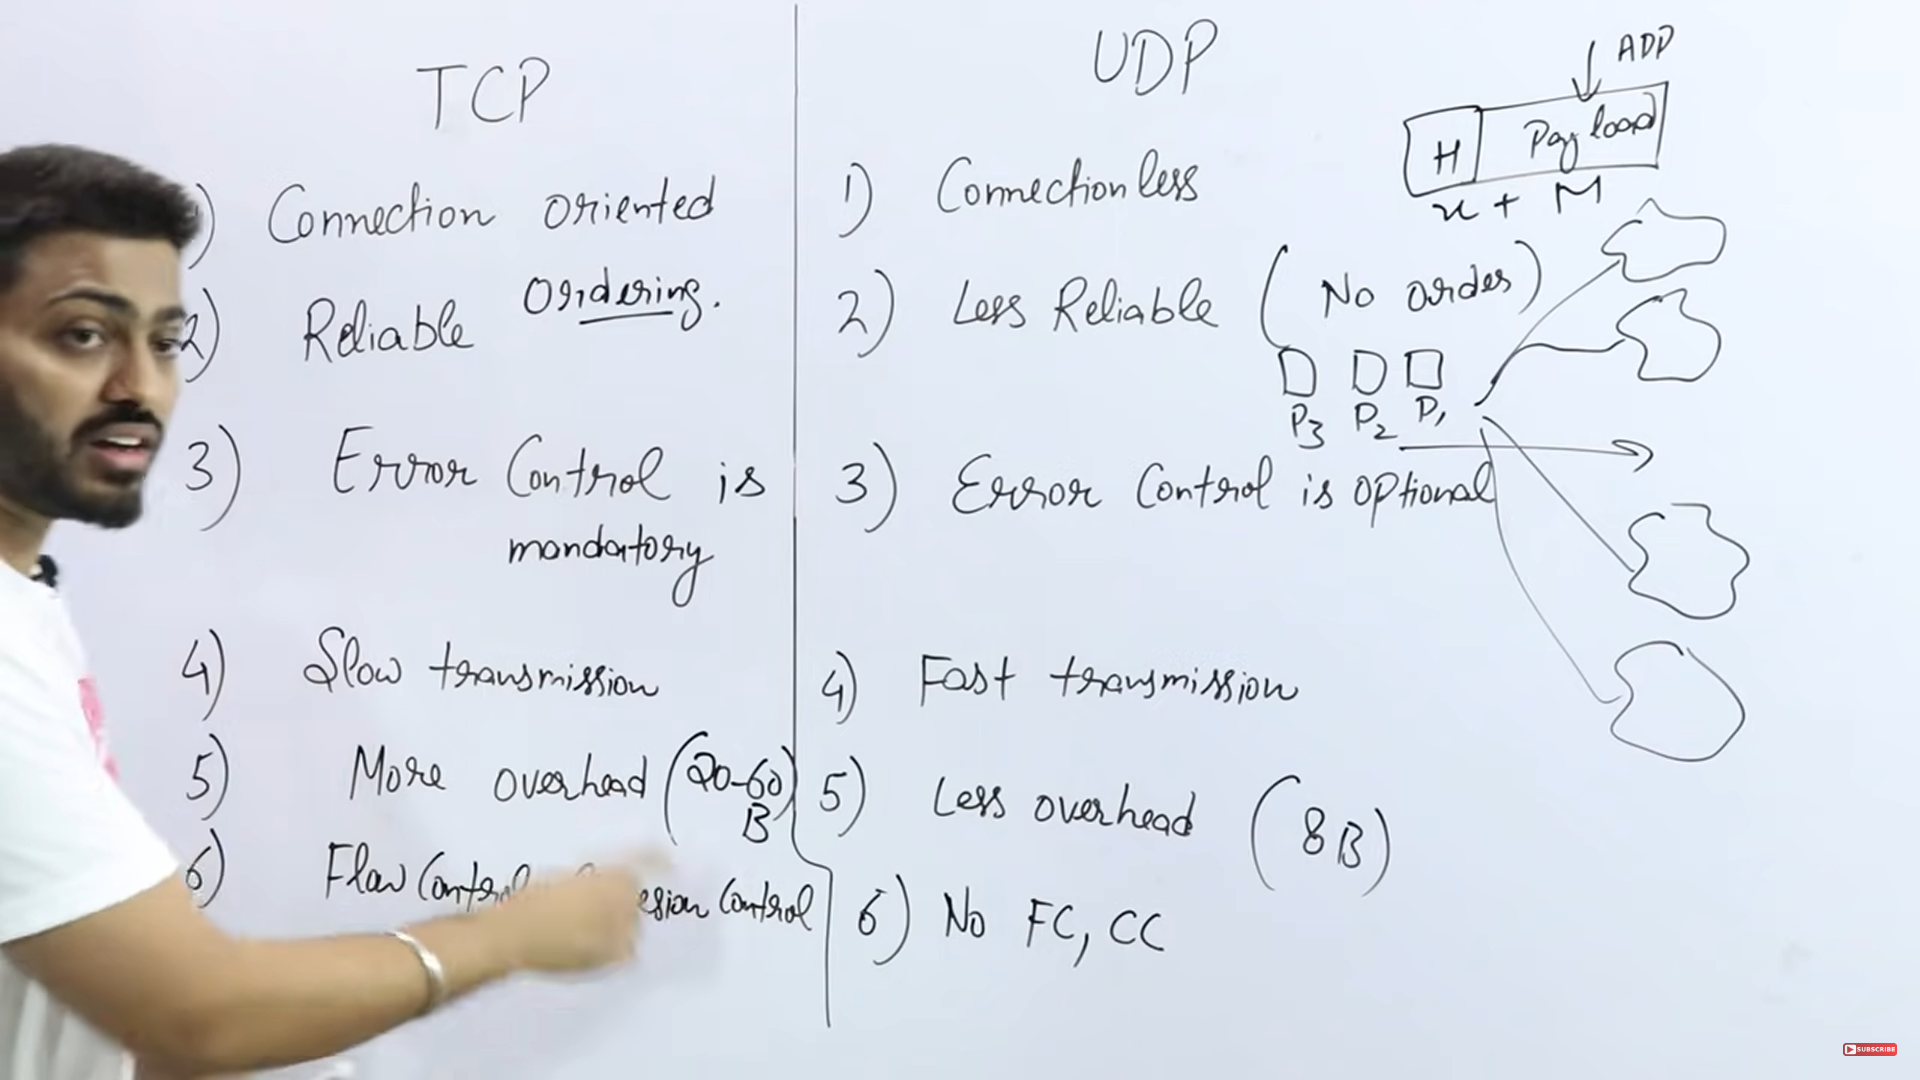 TCP
1) Connection oriented
2) Reliable Ordering.
3) Error Control is
mandatory
4) Slow transmission
5) More overhead (20-60)
B
6) Flow Control, Control
UDP
1) Connectionless
2) Less Reliable (No order)
P3 P2 P1
3) Error Control is optional
4) Fast transmission
5) Less overhead (8B)
6) No FC, CC
ADD
H Payload
x + M
SUBSCRIBE